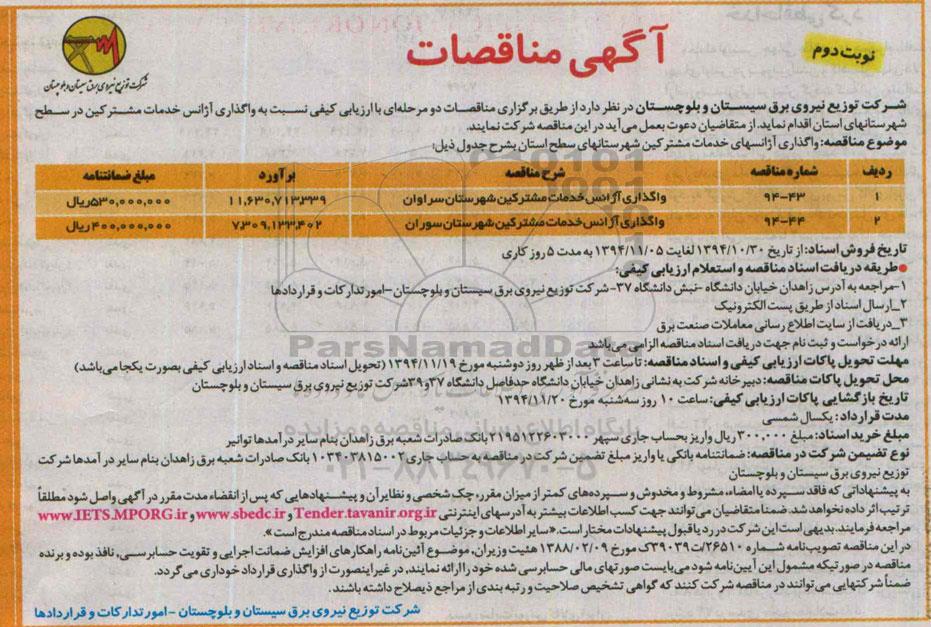 نوبت دوم
آگهی مناقصات
شرکت توزیع نیروی برق سیستان و بلوچستان
شرکت توزیع نیروی برق سیستان و بلوچستان در نظر دارد از طریق برگزاری مناقصات دو مرحله‌ای با ارزیابی کیفی نسبت به واگذاری آژانس خدمات مشترکین در سطح
شهرستانهای استان اقدام نماید. از متقاضیان دعوت بعمل می‌آید در این مناقصه شرکت نمایند.
موضوع مناقصه: واگذاری آژانسهای خدمات مشترکین شهرستانهای سطح استان بشرح جدول ذیل:
ردیف شماره مناقصه شرح مناقصه برآورد مبلغ ضمانتنامه
۱ ۹۴-۴۳ واگذاری آژانس خدمات مشترکین شهرستان سراوان ۱۱,۶۳۰,۷۱۳,۳۳۹ ۵۳۰,۰۰۰,۰۰۰ ریال
۲ ۹۴-۴۴ واگذاری آژانس خدمات مشترکین شهرستان سوران ۷,۳۰۹,۱۳۳,۴۰۲ ۴۰۰,۰۰۰,۰۰۰ ریال
تاریخ فروش اسناد: از تاریخ ۱۳۹۴/۱۰/۳۰ لغایت ۱۳۹۴/۱۱/۰۵ به مدت ۵ روز کاری
● طریقه دریافت اسناد مناقصه و استعلام ارزیابی کیفی:
۱-مراجعه به آدرس زاهدان خیابان دانشگاه -نبش دانشگاه ۳۷- شرکت توزیع نیروی برق سیستان و بلوچستان -امور تدارکات و قراردادها
۲_ارسال اسناد از طریق پست الکترونیک
۳_دریافت از سایت اطلاع رسانی معاملات صنعت برق
ارائه درخواست و ثبت نام جهت دریافت اسناد مناقصه الزامی می‌باشد
مهلت تحویل پاکات ارزیابی کیفی و اسناد مناقصه: تا ساعت ۳ بعد از ظهر روز دوشنبه مورخ ۱۳۹۴/۱۱/۱۹ (تحویل اسناد مناقصه و اسناد ارزیابی کیفی بصورت یکجا می‌باشد)
محل تحویل پاکات مناقصه: دبیرخانه شرکت به نشانی زاهدان خیابان دانشگاه حدفاصل دانشگاه ۳۷ و ۳۹ شرکت توزیع نیروی برق سیستان و بلوچستان
تاریخ بازگشایی پاکات ارزیابی کیفی: ساعت ۱۰ روز سه‌شنبه مورخ ۱۳۹۴/۱۱/۲۰
مدت قرارداد: یکسال شمسی
مبلغ خرید اسناد: مبلغ ۳۰۰,۰۰۰ ریال واریز بحساب جاری سپهر ۲۱۹۵۱۲۲۶۰۳۰۰۰ بانک صادرات شعبه برق زاهدان بنام سایر درآمدها توانیر
نوع تضمین شرکت در مناقصه: ضمانتنامه بانکی یا واریز مبلغ تضمین شرکت در مناقصه به حساب جاری ۱۰۳۴۰۳۸۱۵۰۰۲ بانک صادرات شعبه برق زاهدان بنام سایر درآمدها شرکت
توزیع نیروی برق سیستان و بلوچستان
به پیشنهاداتی که فاقد سپرده یا امضاء، مشروط و مخدوش و سپرده‌های کمتر از میزان مقرر، چک شخصی و نظایر آن و پیشنهادهایی که پس از انقضاء مدت مقرر در آگهی واصل شود مطلقاً
ترتیب اثر داده نخواهد شد. ضمنا متقاضیان می‌توانند جهت کسب اطلاعات بیشتر به آدرسهای اینترنتی Tender.tavanir.org.ir و www.sbedc.ir و www.IETS.MPORG.ir
مراجعه فرمایند. بدیهی است این شرکت در رد یا قبول پیشنهادات مختار است. «سایر اطلاعات و جزئیات مربوط در اسناد مناقصه مندرج است».
در این مناقصه تصویب‌نامه شماره ۲۶۵۱۰/ت۳۹۰۳۹ک مورخ ۱۳۸۸/۰۲/۰۹ هیئت وزیران، موضوع آئین‌نامه راهکارهای افزایش ضمانت اجرایی و تقویت حسابرسی، نافذ بوده و برنده
مناقصه در صورتیکه مشمول این آیین‌نامه شود می‌بایست صورتهای مالی حسابرسی شده خود را ارائه نمایند، در غیر اینصورت از واگذاری قرارداد خودداری می‌گردد.
ضمناً شرکتهایی می‌توانند در مناقصه شرکت کنند که گواهی تشخیص صلاحیت و رتبه بندی از مراجع ذیصلاح داشته باشند.
شرکت توزیع نیروی برق سیستان و بلوچستان -امور تدارکات و قراردادها
ParsNamadData